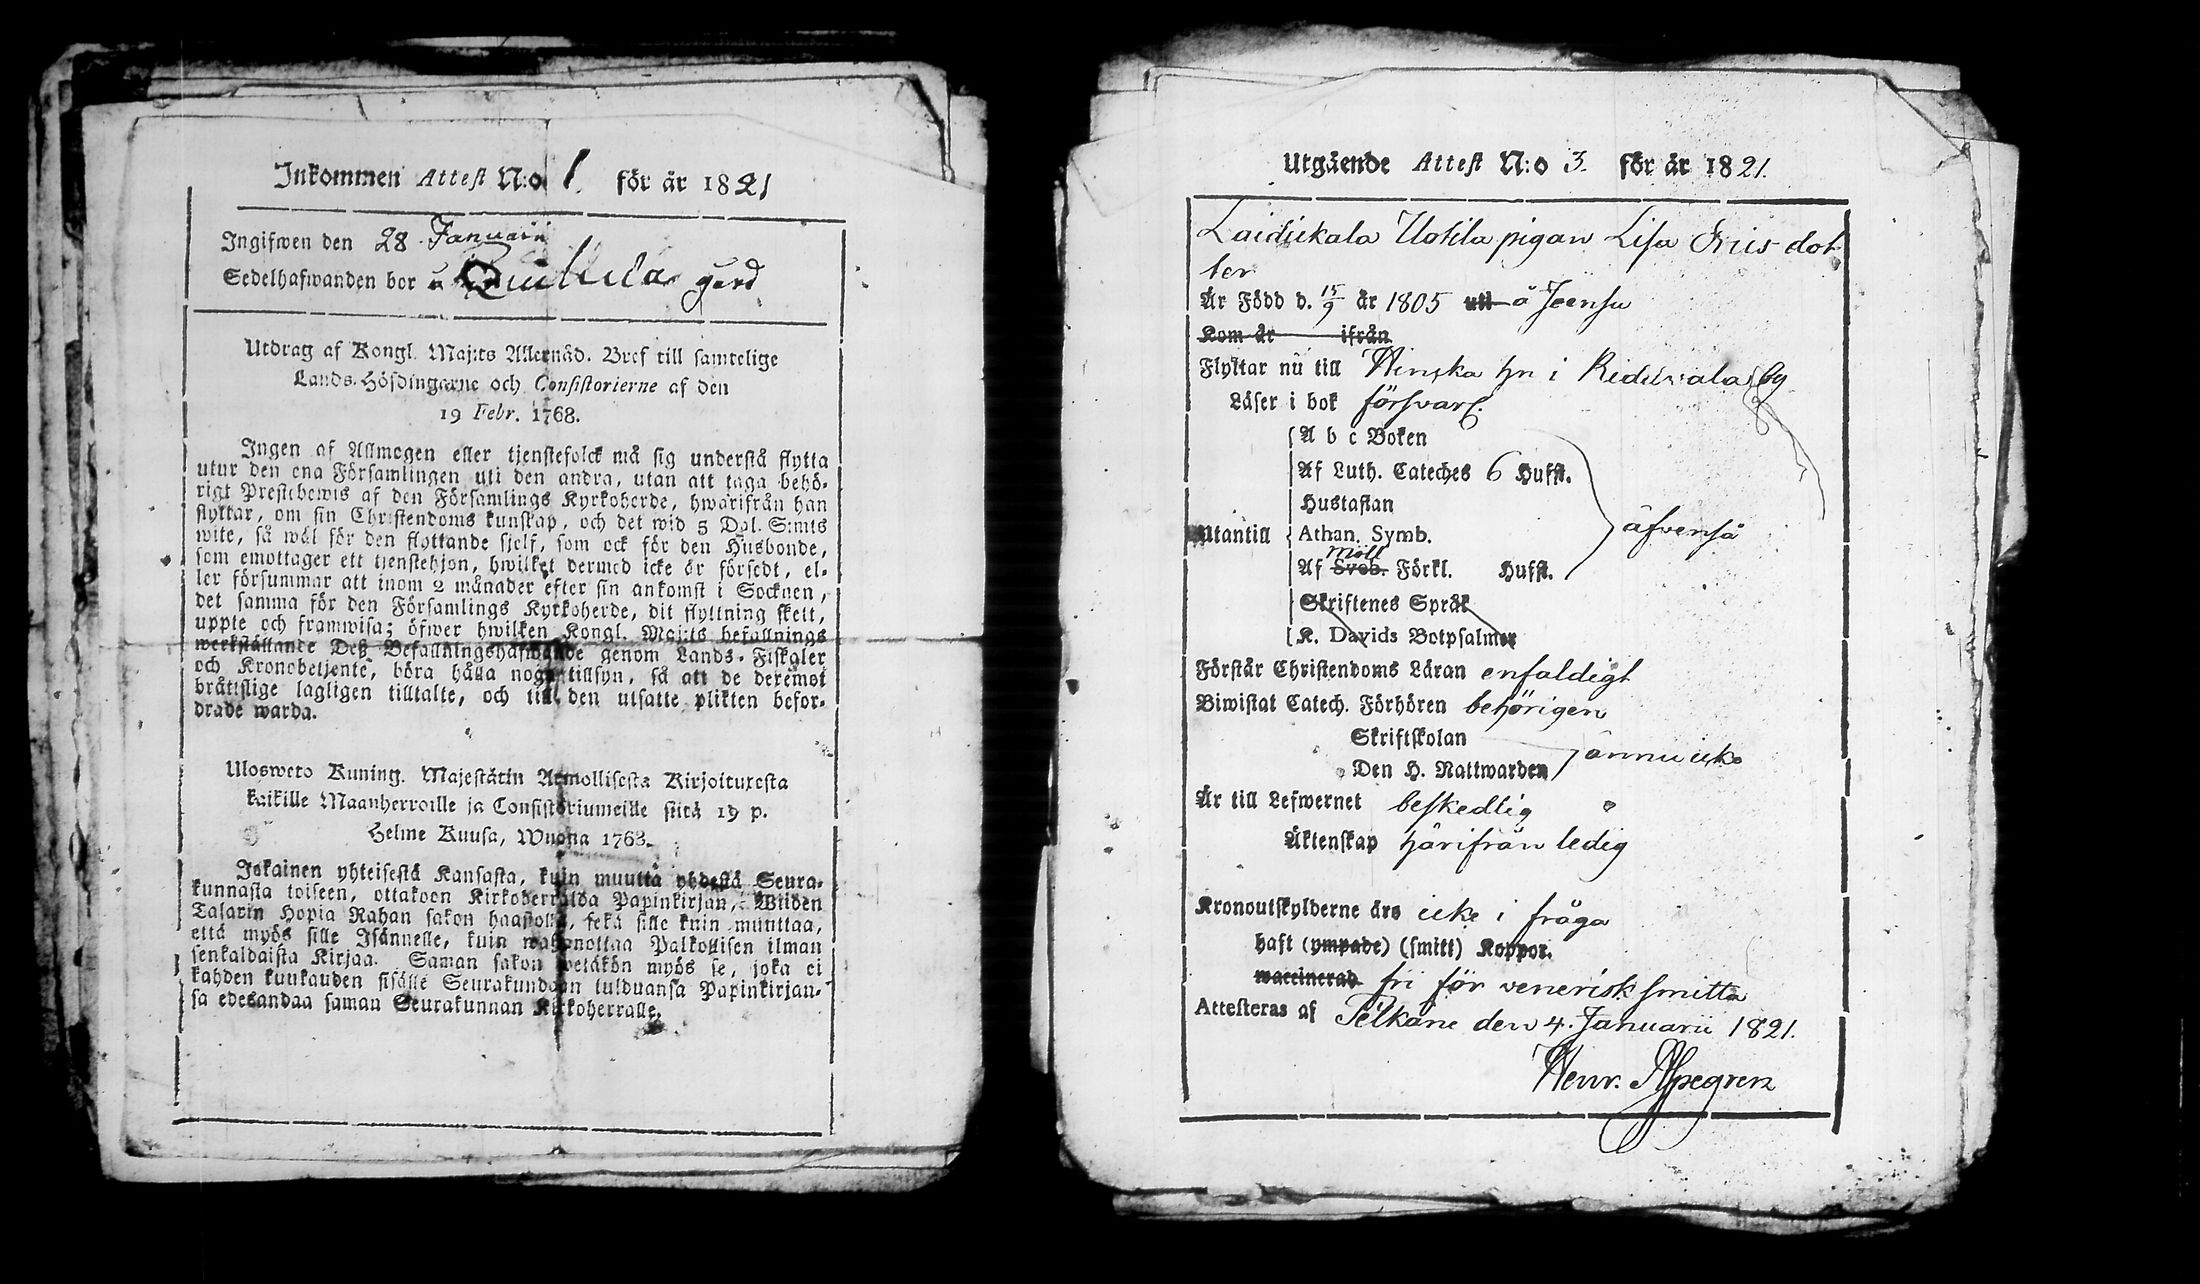 Inkommen Attest N:o 1. för år 1821
Ingifwen den 28 Januarii
Sedelhafwanden bor i gård
Utdrag af Kongl. Maj:ts Allernåd. Bref till samtelige
Lands-Höfdingarne och Consistorierne af den
19 Febr. 1768.
Ingen af Allmogen eller tjenstefolck må sig understå flytta
utur den ena Församlingen uti den andra, utan att taga behö-
rigt Prestebewis af den Församlings Kyrkoherde, hwarifrån han
flyttar, om sin Christendoms kunskap, och det wid 5 Dal. S:mts
wite, så wäl för den flyttande sjelf, som ock för den Husbonde,
som emottager ett tjenstehjon, hwilket dermed icke är försedt, el-
ler försummar att inom 2 månader efter sin ankomst i Socknen,
det samma för den Församlings Kyrkoherde, dit flyttning skett,
uppte och framwisa; öfwer hwilken Kongl. Maj:ts befallnings
werkställande Deß Befallningshafwande genom Lands-Fiskaler
och Kronobetjente, böra hålla noga tillsyn, så att de deremot
bråttslige lagligen tilltalte, och till den utsatte plikten befor-
drade warda.
Ulosweto Kuning. Majestätin Armollisesta Kirjoituxesta
kaikille Maanherroille ja Consistoriumeille siitä 19 p.
Helme Kuusa, Wuona 1768.
Jokainen yhteisestä Kansasta, kuin muutta yhdestä Seura-
kunnasta toiseen, ottakoon Kirkoherralda Papinkirjan, Wiiden
Talarin Hopia Rahan sakon haastolla, sekä sille kuin muuttaa,
että myös sille Isännelle, kuin wastanottaa Palkollisen ilman
senkaldaista Kirjaa. Saman sakon wetäkön myös se, joka ei
kahden kuukauden sisälle Seurakundaan tulduansa Papinkirjan-
sa edesandaa saman Seurakunnan Kirkoherralle.
Utgående Attest N:o 3. för år 1821.
Laidickala Uotila pigan Lisa Eriks dot
ter
Är Född d. 15/9 år 1805 uti å Joensu
Kom år ifrån
Flyttar nu till Wenska hn i by
Läser i bok försvarl.
A b c Boken
Af Luth. Cateches 6 Huffst.
Hustaflan
Utantill Athan. Symb. äfvenså
Möll
Af Sveb. Förkl. Huffst.
Skriftenes Språk
K. Davids Botpsalmer
Förstår Christendoms Läran enfaldigt
Biwistat Catech. Förhören behörigen
Skriftskolan
Den H. Nattwarden ännu icke
Är till Lefwernet beskedlig
Äktenskap härifrån ledig
Kronoutskylderne äro icke i fråga
haft (ympade) (smitt) Koppor.
waccinerad fri för venerisk smitta
Attesteras af Pelkäne den 4. Januarii 1821.
Henr.